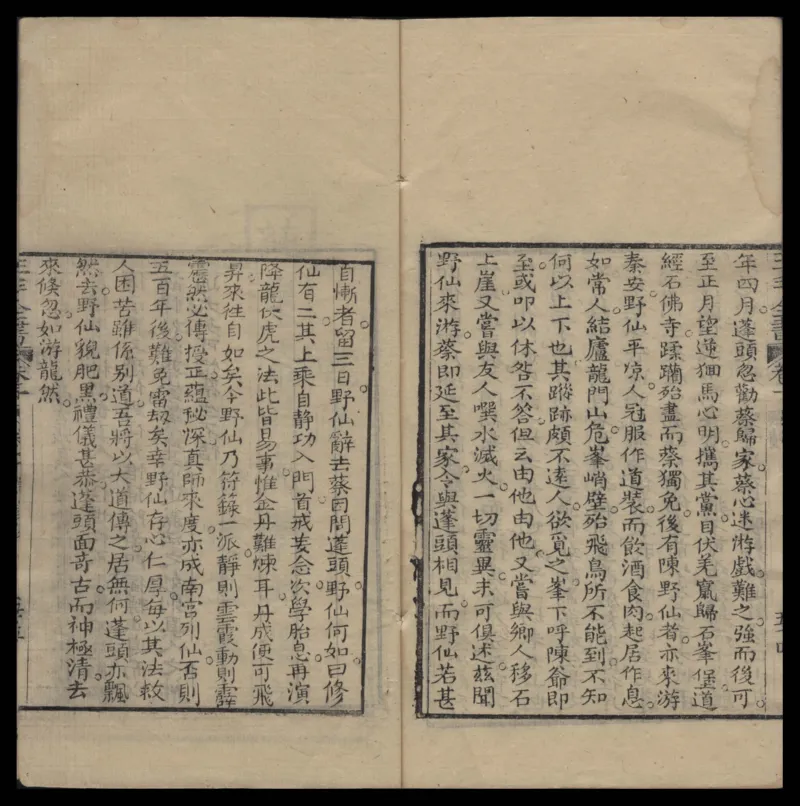 年四月蓬頭忽勸蔡歸家蔡心迷游戲難之強而後可
至正月望蓮𤞑馬心明攜其黨目伏羌竄歸石峯堡道
經石佛寺蹂躪殆盡而蔡獨免後有陳野仙者亦來游
秦安野仙平凉人冠服作道裝而飲酒食肉起居作息
如常人結廬龍門山危峯峭壁殆飛鳥所不能到不知
何以上下也其蹤跡頗不遠人欲覓之峯下呼陳爺即
至或叩以休咎不答但云由他由他又嘗與鄉人移石
上崖又嘗與友人噀水滅火一切靈異未可俱述茲聞
野仙來游蔡即延至其家令與蓬頭相見而野仙若甚
自慚者留三日野仙辭去蔡因問蓬頭野仙何如曰修
仙有二其上乘自靜功入門首戒妄念次學胎息再演
降龍伏虎之法此皆易事惟金丹難煉耳丹成便可飛
昇來往自如矣今野仙乃符籙一派靜則雲霞動則霹
靂然必傳授正蘊秘深真師來度亦成南宮列仙否則
五百年後難免雷劫矣幸野仙存心仁厚每以其法救
人困苦雖係別道吾將以大道傳之居無何蓬頭亦飄
然去野仙貌肥黑禮儀甚恭蓬頭面奇古而神極清去
來倏忽如游龍然